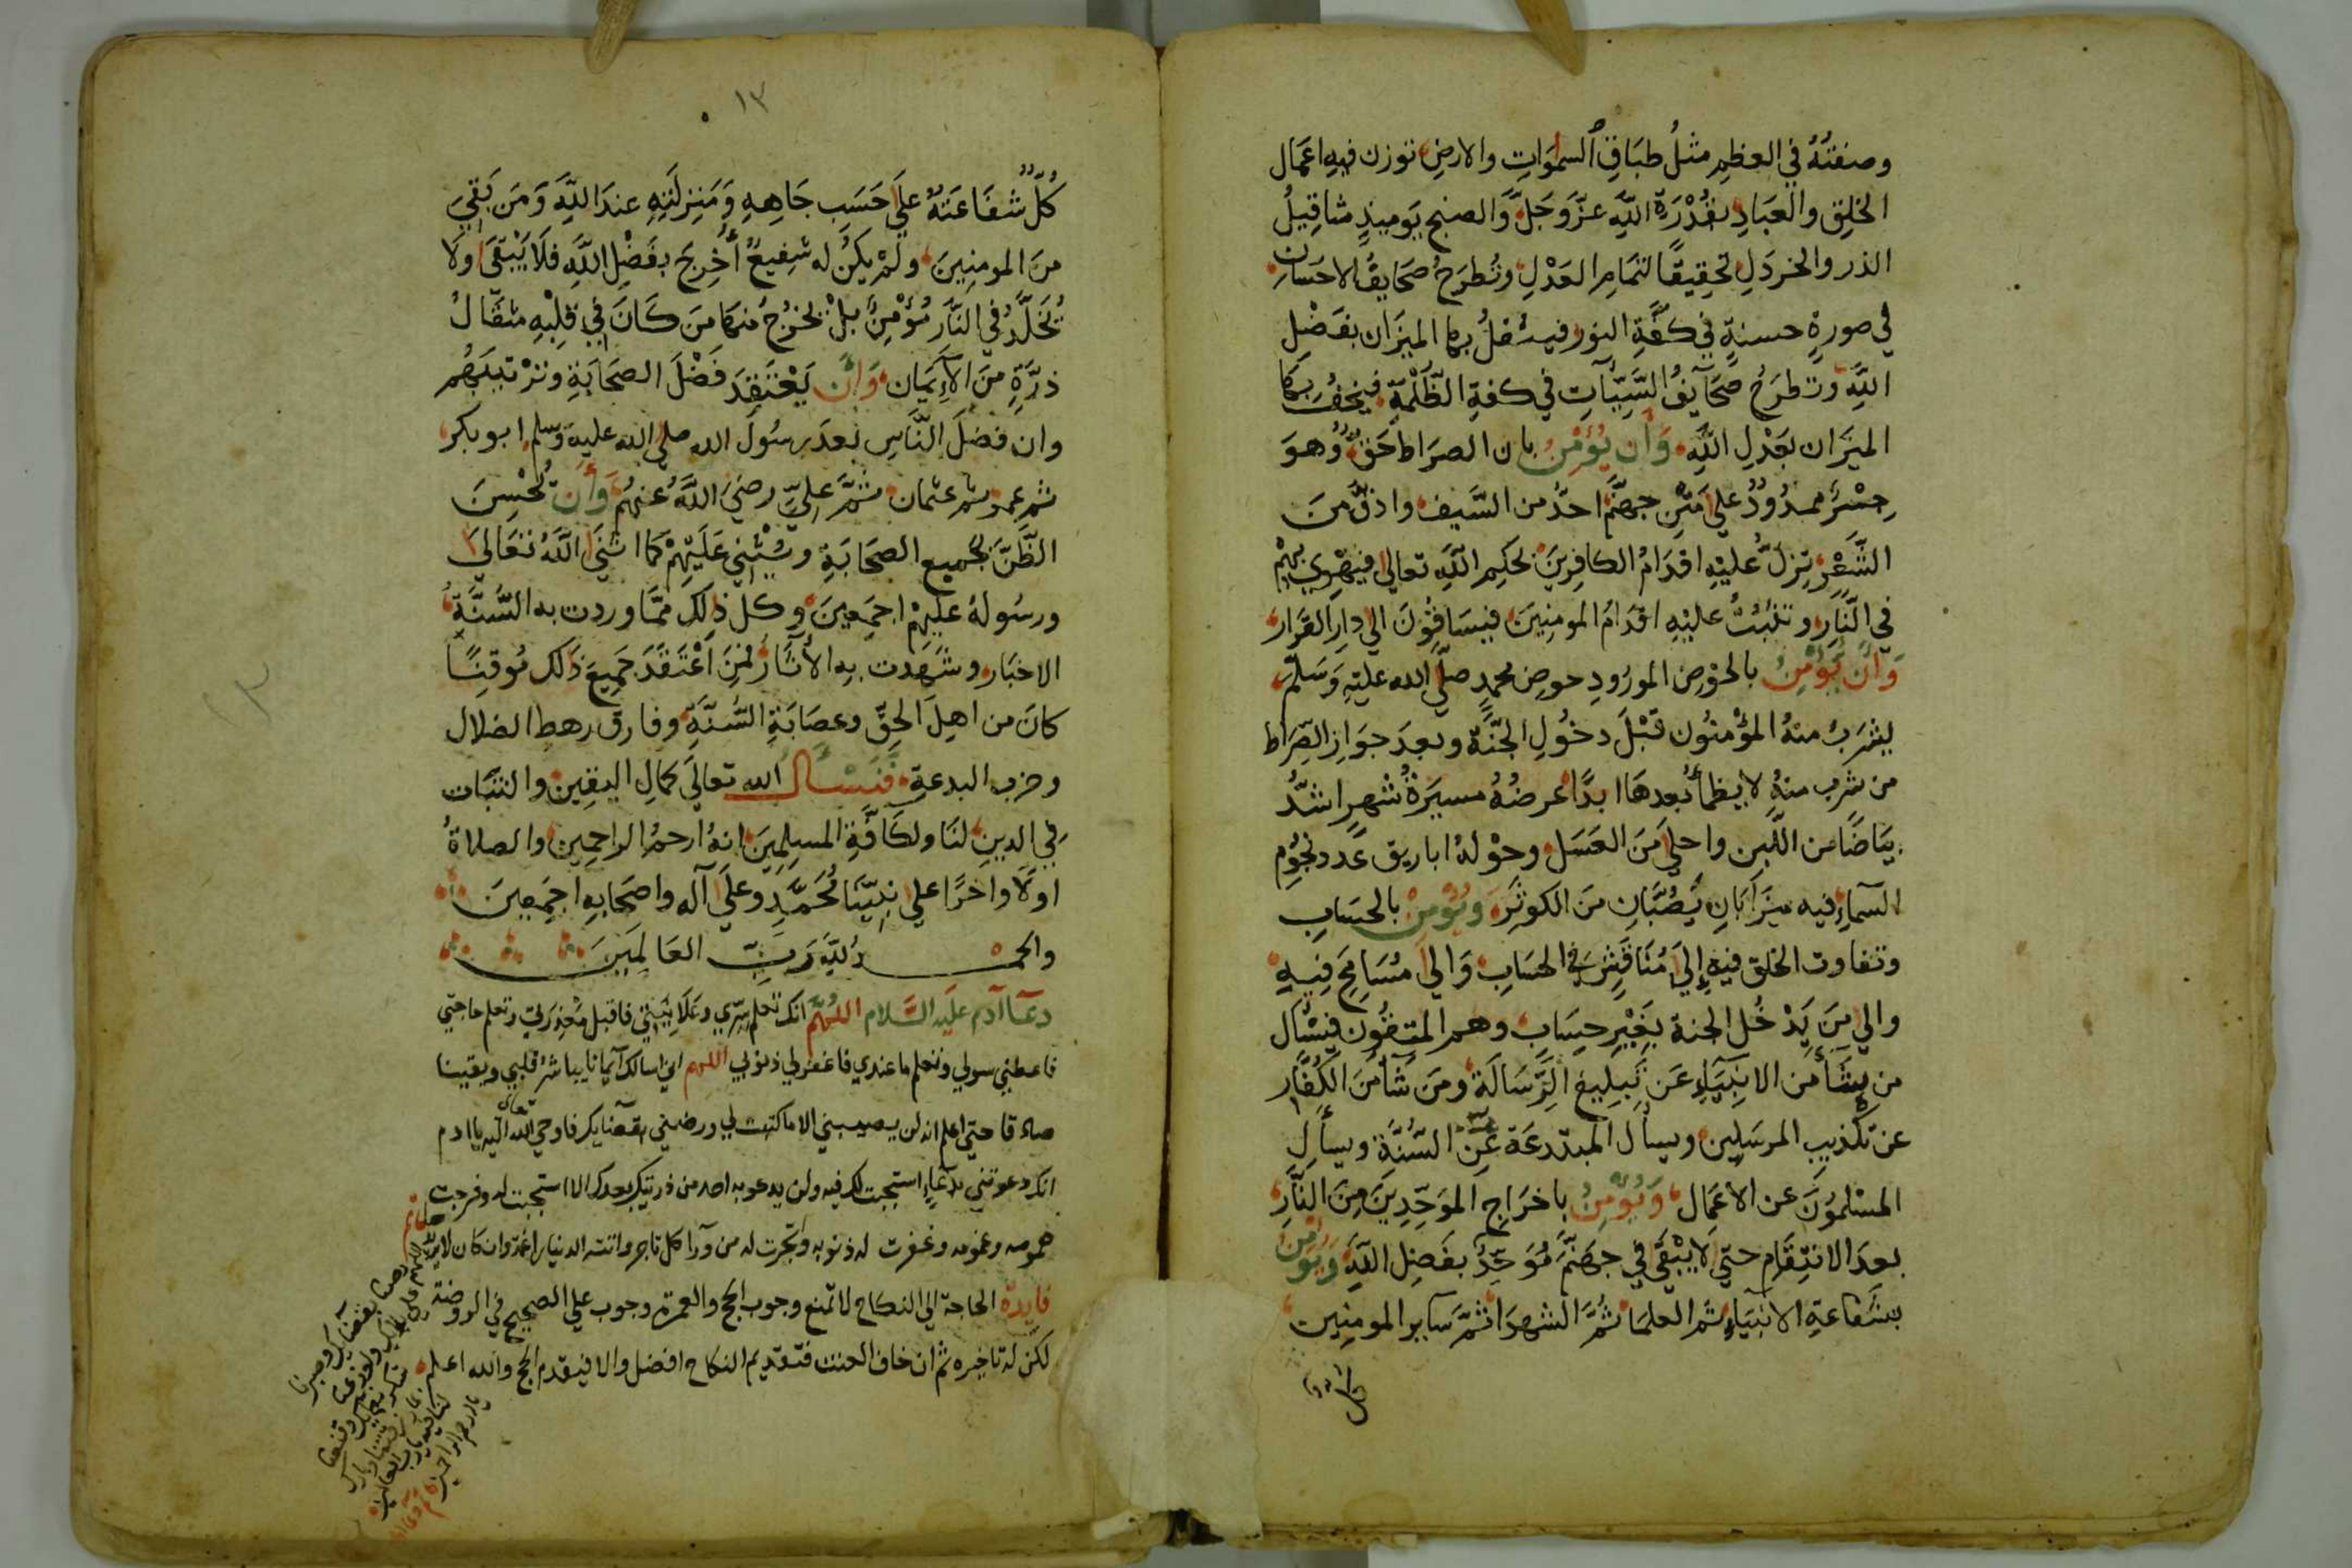 وصفتُهُ في العظمِ مثلُ طبَاقِ السموَاتِ والارضِ توزن فيهِ اعمَال
الخلقِ والعبَادِ بقُدْرَةِ اللَّهِ عزَّ وَجَلَّ وَالصنج يَوميذٍ مثاقِيلُ
الذر والخردَلِ تحقِيقًا لتمَامِ العَدْلِ وتُطرَحُ صَحَايفُ الاحسَان
في صورةٍ حسنةٍ في كفَّةِ النور فيثقلُ بها الميزَان بفَضْلِ
اللَّهِ وتطرَحُ صَحَآيفُ السَّيِّئآتِ في كفةِ الظُّلْمَةِ فيَخفُّ بهَا
الميزَان بعَدْلِ اللَّهِ وَأن يُؤمْنَ بان الصرَاط حَقٌّ وُهوَ
جِسْرٌ ممدُودٌ على مَتْنِ جهنَّمَ احدُّ من السَّيف وادقُّ مِنَ
الشَّعْرِ تزلُّ عليْهِ اقدَامُ الكافِرِينَ بحكِم اللَّهِ تعالى فيَهْوِي بِهِمْ
في النَّارِ وتثبُتُ عليْهِ اقدَامُ المومنِينَ فيسَاقُونَ الي دارِ القَرَار
وَأَنْ يُؤمِنَ بالحَوْضِ المورُودِ حوضِ محمدٍ صلَّي الله عليْهِ وَسَلَّمَ
يشرَبُ منهُ المؤْمنُون قَبْلَ دخُولِ الجَنَّةِ وبعدَ جوَازِ الصِّرَاط
من شرب منهُ لا يظمأ بُعدهَا ابدًا عرضُهُ مسيَرةُ شهرٍ اشدُّ
بيَاضًا من اللَّبن واحلَي مَنَ العَسَل وحوْلهُ اباريق عَدد نجُومِ
السَّمآءِ فيه ميزَابَانِ يَصُبَّانِ مِنَ الكوثرَ وَيُؤمنُ بالحسَابِ
وتفاوت الخلق فيهِ إليَ مُنَاقَشٍ في الحسَابِ وَالي مُسَامَحٍ فِيهِ
والي مَن يَدْخُل الجنة بِغَيْرِ حِسَابٍ وهم المقرَّبُون فَيَسْأل
من يشَأ مِنَ الانبِيَآءِ عَن تَبلِيغِ الرِّسَالَة ومَن شَآءَ مِنَ الكُفَّار
عن تكْذِيبِ المرسَلِين ويسأل المبتدعَة عَنِ السُّنَّة ويسأل
المسْلمُونَ عن الاعمَال وَيُؤمِنُ باخرَاجِ الموَحِّدِينَ مِنَ النَّارِ
بعدَ الانتِقَامِ حتي لا يَبْقَي في جهَنَّمَ مُوَحِّدٌ بفَضِل اللَّهِ وَيُؤْمِنُ
بشَفاعَةِ الانبيَآءِ ثم العلمَا ثُمَّ الشهدَا ثمَّ سَآير المومنِين
كل
١٣
كُلٌّ شفَاعَتهُ عليَ حَسَبِ جَاهِهِ وَمَنزِلَتِهِ عندَ اللَّهِ وَمَن بَقِيَ
منَ المومنِينَ ولمْ يكنْ له شفِيعٌ أُخرِجَ بفَضْلِ اللَّهِ فلَا يَبْقَيَ ولا
يُخَلَّدُ في النَّارِ مُؤْمِنٌ بلْ يَخرُج منهَا مَن كَانَ في قلْبِهِ مثقَالُ
ذرَّةٍ مِنَ الاِيمَان وَأنْ يَعْتَقِدَ فَضْلَ الصحَابَةِ وَترْتيبَهُم
وان فضلَ النَّاسِ بعدَ رسُولَ الله صلي الله عليه وسلم ابو بكر
ثم عمر ثم عثمان ثمَّ عليٌّ رضيَ اللَّهُ عنهُم وَأنْ يُحْسِنَ
الظَّنَّ بجميع الصحَابَةِ ويُثْنِي عَلَيْهِمْ كمَا اثنَي اللَّهُ تعَالَيَ
ورسُولهُ عليْهِمْ اجمَعِينَ وكل ذلِك ممَّا وردت به السُّنَّةُ
الاخبَار وشهَدت بِه الآثَارُ فمَن اعْتَقَدَ جَميعَ ذَلك مُوقِنًا
كانَ من اهِل الحقِّ وعصَابَةِ السُّنَّةِ وفارق رهط الضلال
وحزب البدعةِ فَنَسْأل الله تعالَي كمالِ اليقينِ والثبَات
في الدينِ لنَا ولكَافَّةِ المسلِمِينَ انهُ ارحمُ الراحمِين والصلاةُ
اولًا واخرًا علي نبيّنَا مُحَمَّدٍ وعلَي آله واصحَابهِ اجمَعِينَ
والحمـــدُ للَّهِ رَبِّ العَالمينَ
دعآء آدم عليَه السَّلام اللهُمَّ انك تعلم سِرِّي وعَلَانِيَتي فاقبل معْذِرَتي وتعلم حاجتي
فاعطني سولي وتعلم ما عندي فاغفر لي ذنوبي اللهم اني اسالك آيمانا يباشر قلبي ويقينا
صادقا حتي اعلم انه لن يصيبني الا ما كتبت لي ورضني بقضآيك فاوحي الله تعالى اليه يا ادم
انك دعوتني بدعآءٍ استجبت لك فيه ولن يدعو به احد من ذريتك بعدك الا استجبت له وفرجت
همومه وغمومه وغفرت له ذنوبه وتجرت له من ورآء كل تاجر واتته الدنيا راغمة وان كان لا يريدها
فايدة الحاجة الي النكاح لا تمنع وجوب الحج والعمرة وجوب علي الصحيح في الروضة
لكن له تاخيره ثم ان خاف العنت فتقديم النكاح افضل والا فيقدم الحج والله اعلم